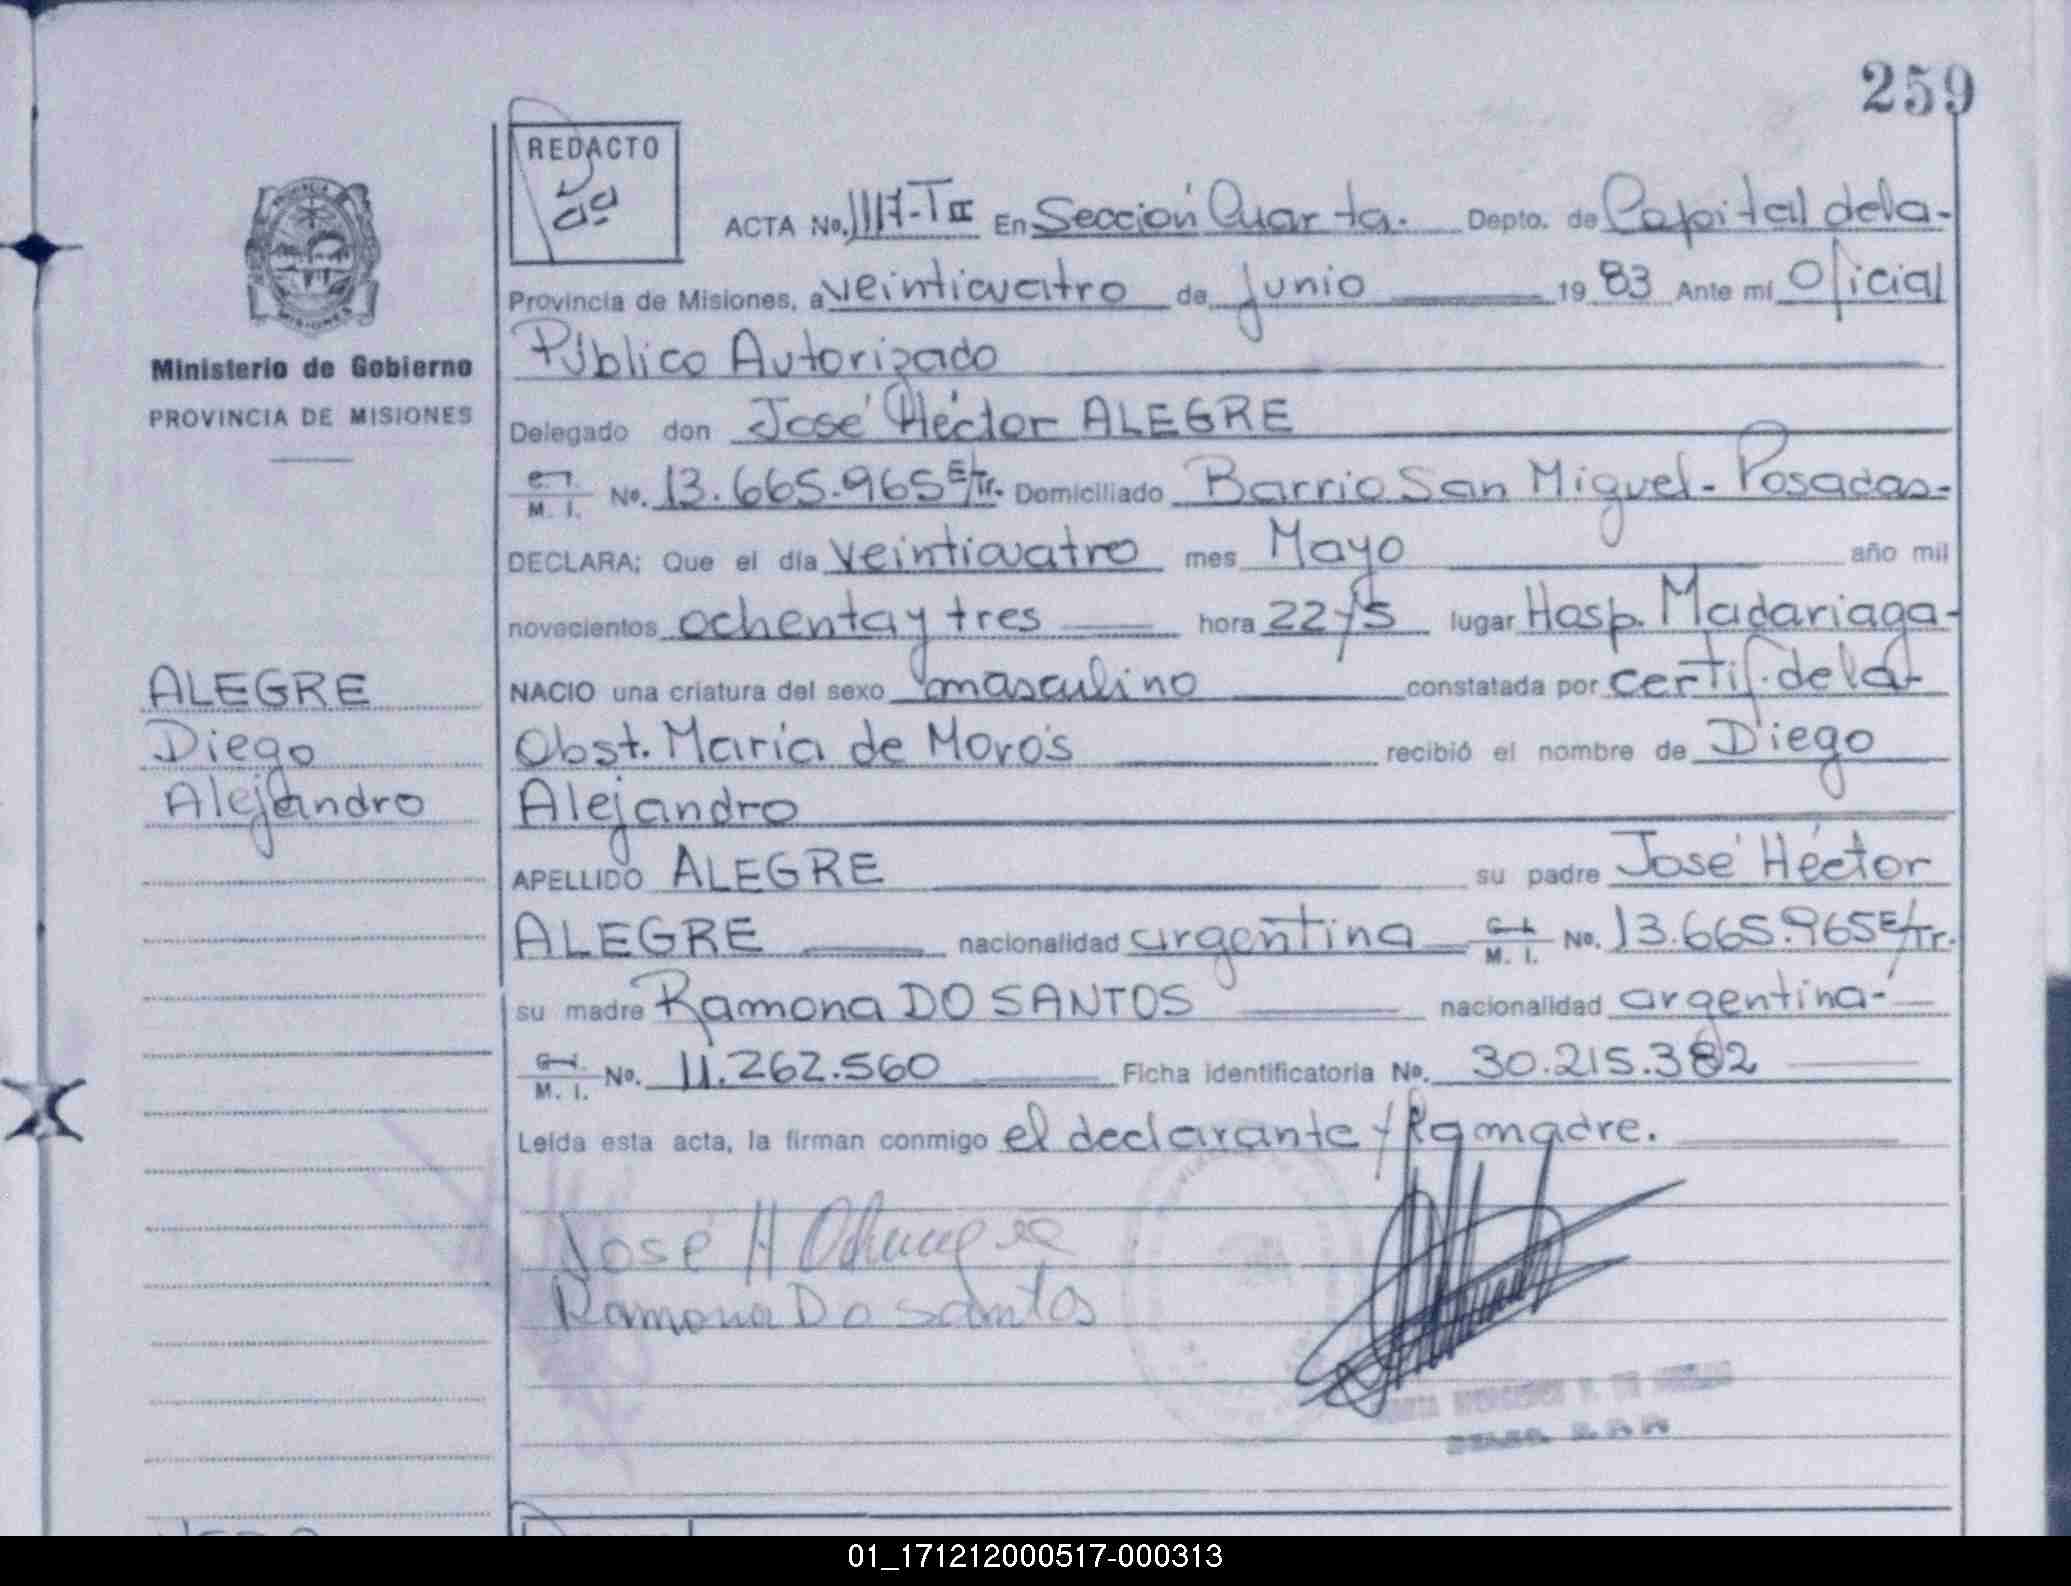 259
REDACTO
ACTA No. 1117-T III En Sección Cuarta. Depto. de Capital de la-
Provincia de Misiones, a veinticuatro de junio 19 83 Ante mí Oficial
Público Autorizado
Delegado don José Héctor ALEGRE
M. I. No. 13.665.965 E/Tr. Domiciliado Barrio San Miguel - Posadas-
DECLARA; Que el día veinticuatro mes Mayo año mil
novecientos ochenta y tres hora 22 y 5 lugar Hosp. Madariaga-
NACIO una criatura del sexo masculino constatada por certif. de la
Obst. María de Moro's recibió el nombre de Diego
Alejandro
APELLIDO ALEGRE su padre José Héctor
ALEGRE nacionalidad argentina M. I. No. 13.665.965 E/Tr.
su madre Ramona DO SANTOS nacionalidad argentina-
M. I. No. 11.262.560 Ficha identificatoria No. 30.215.382
Leída esta acta, la firman conmigo el declarante y la madre.
José H
Ramona Do santos
Ministerio de Gobierno
PROVINCIA DE MISIONES
ALEGRE
Diego
Alejandro
01_171212000517-000313